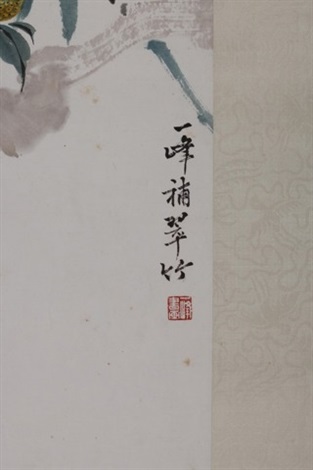 一峰補翠竹